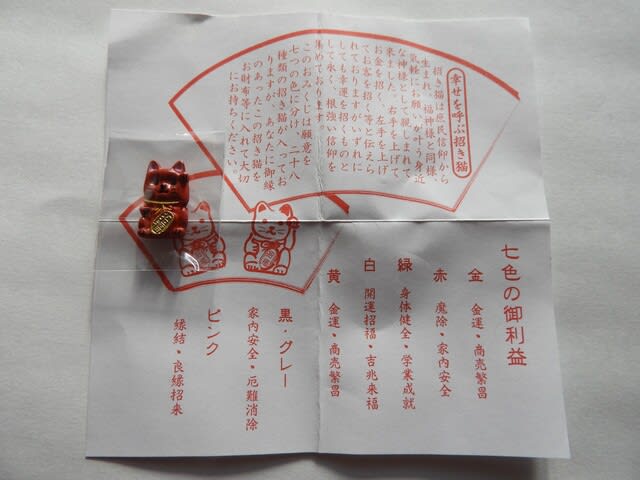 幸せを呼ぶ招き猫
招き猫は庶民信仰から
生まれ、福神様と同様、
気軽にお願いがする身近
な神様として親しまれて
来ました。右手を上げて
お金を招く、左手を上げ
てお客を招く等と伝えら
れておりますがいずれに
しても幸運を招くものと
して永く、根強い信仰を
集めております。
このおみくじは願意を
七つの色に分け、二十八
種類の招き猫が入ってお
りますが、あなたに御縁
のあったこの招き猫を
お財布等に入れて大切
にお持ちください。
七色の御利益
金 金運・商売繁昌
赤 魔除・家内安全
緑 身体健全・学業成就
白 開運招福・吉兆来福
黄 金運・商売繁昌
黒・グレー
家内安全・厄難消除
ピンク
縁結・良縁招来